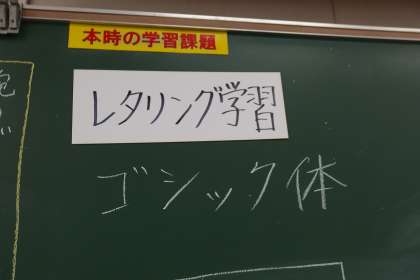 本時の学習課題
レタリング学習
ゴシック体